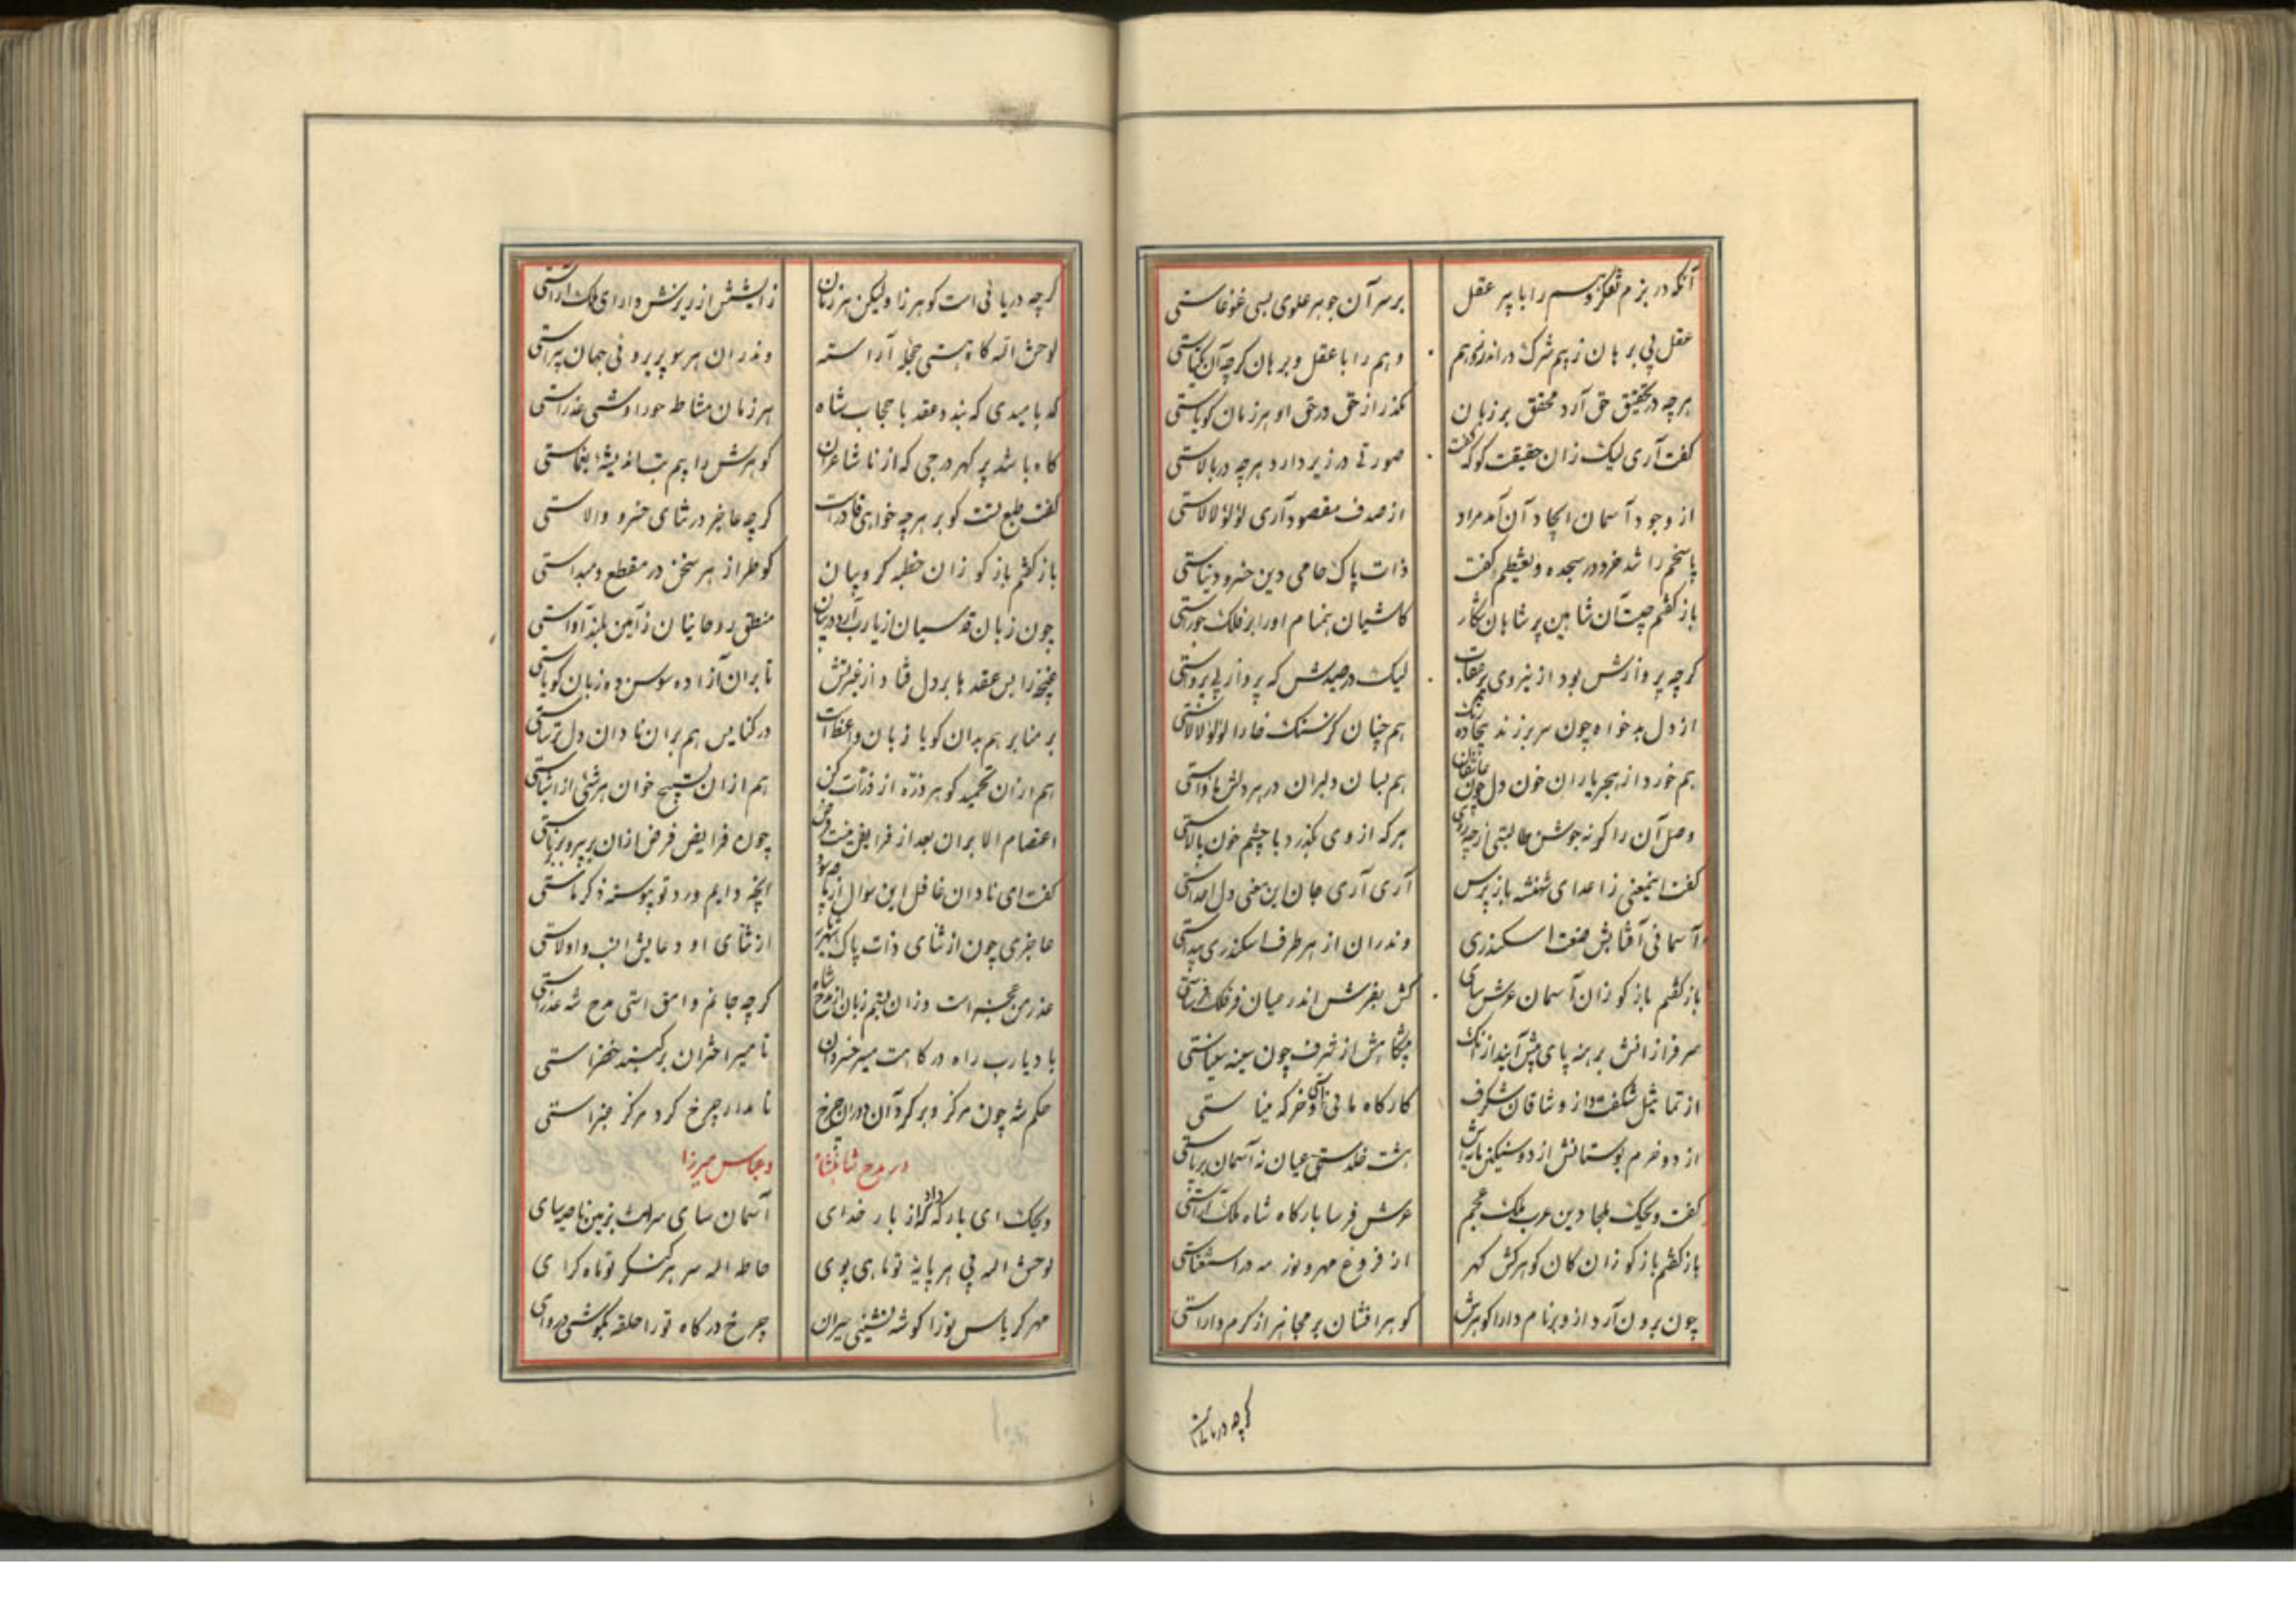 آنکه در بزم تفکر وهم را با پیر عقل بر سر آن جوهر علوی بسی غوغاستی
عقل بی برهان ز بیم شرک در اندرز وهم وهم را با عقل و برهان کرچه آن یکتاستی
هرچه در تحقیق حق آرد محقق بر زبان مکذر از حق در حق او هر زمان کویاستی
کفت آری لیک زان حقیقت کو که کفت صورتی در زیر دارد هرچه در بالاستی
از وجود آسمان ایجاد آن آمد مراد از صدف مقصود آری لؤلؤ لالاستی
پاسخم را شد خرد در سجده و تعظیم کفت ذات پاک حامی دین خسرو دنیاستی
باز کفتم چیست آن شاهین پر شاهان شکار کاشیان بهنام او را بر فلک جوراستی
کرچه پروازش بود از نیروی پر عقاب لیک در صیدش که پرواز بی پرواستی
از دل بدخواه چون سر برزند بیجاده رنگ هم چنان کز سنک خارا لؤلؤ لالاستی
هم خورد از هجر یاران خون دل چون عاشقان هم بسان دلبران در هر دلش ماواستی
وصل آن را کونه جوشن طالبتی از چه روی هرکه از وی بکذرد با چشم خون پالاستی
کفت اینمعنی ز اعدای شهنشه باز پرس آری آری جان این معنی دل اعداستی
آسمانی آفتابش صنعت اسکندری وندران از هر طرف اسکندری پیداستی
باز کفتم باز کو زان آسمان عرش سای کش بفرش اندر میان فر فلک فرساستی
سرفرازانش برهنه پای پیش آیند از آنک پیشکاهش از شرف چون سینه سیناستی
از تماثیل شکفت و از وشاقان شکرف کارکاه مانی و خرکه میناستی
از دو خرم بوستانش از دو سنکین هشت خلدستی عیان نه آسمان برپاستی
کفت ویحک ملجا دین عرب ملک عجم عرش فرسا بارکاه شاه ملک آراستی
باز کفتم باز کو زان کان کوهر کش کهر از فروغ مهر و نور مه در استغناستی
چون برون آرد از و برنام دارا کوهرش کوهر افشان بر مجاهر از کرم داراستی
کرچه دریائی
کرچه دریائی است کوهرزا ولیکن هر زمان زایشش از ریزش دارای ملک آراستی
لوحش الله کاه هستی حجله آراسته وندران هر سو پری روئی جهان پیراستی
که بامیدی که بندد عقد با حجاب شاه هر زمان مشاطه حوراوشی عذراستی
کاه باشد پر کهر درجی که از ناشاعران کوهرش را بیم بتاراندیشه یغماستی
کفت طبع تست کو بر هرچه خواهی قادر است کرچه عاجز در ثنای خسرو والاستی
باز کفتم باز کو زان خطبه کروبیان کو طراز هر سخن در مقطع و مبداستی
چون زبان قدسیان از یا رب آرد در بیان منطق روحانیان ز آمین بلند آواستی
غنچه را بس عقدها بر دل فتاد از غیرتش تا بران آزاده سوسن ده زبان کویاستی
بر منابر هم بدان کویا زبان واعظ است در کنایس هم بران نادان دل ترساستی
هم ازان تحمید کو هر ذره از ذرات کن هم ازان تسبیح خوان هر شئی از اشیاستی
اعتصام الا بران بعد از فرایض نیست فرض چون فرایض فرض ازان بر پیر و برناستی
کفت ای نادان غافل این سوال از بهر چه بود اینچه دایم ورد تو پیوسته ذکر ماستی
عاجزی چون از ثنای ذات پاک شهریار از ثنای او دعایش انسب و اولاستی
عذر من عجز است وزان بستم زبان از مدح شاه کرچه جانم وامق استی مدح شه عذراستی
باد یا رب راه درکاهت مسیر خسروان تا مسیر اختران بر کنبد خضراستی
حکم شه چون مرکز و برکرد آن دوران چرخ تا مدار چرخ کرد مرکز غبراستی
در مدح شاهنشاه و عباس میرزا
ویحک ای بارکه داد کر از بار خدای آسمان سای سرات بزمین ناصیه سای
لوحش الله پی هر پایه تو ماهی پوی حاطه الله سر هر کنکر تو ماه کرای
مهر کریاس ترا کوشه نشینی حیران چرخ درکاه تو را حلقه بکوشی دروای